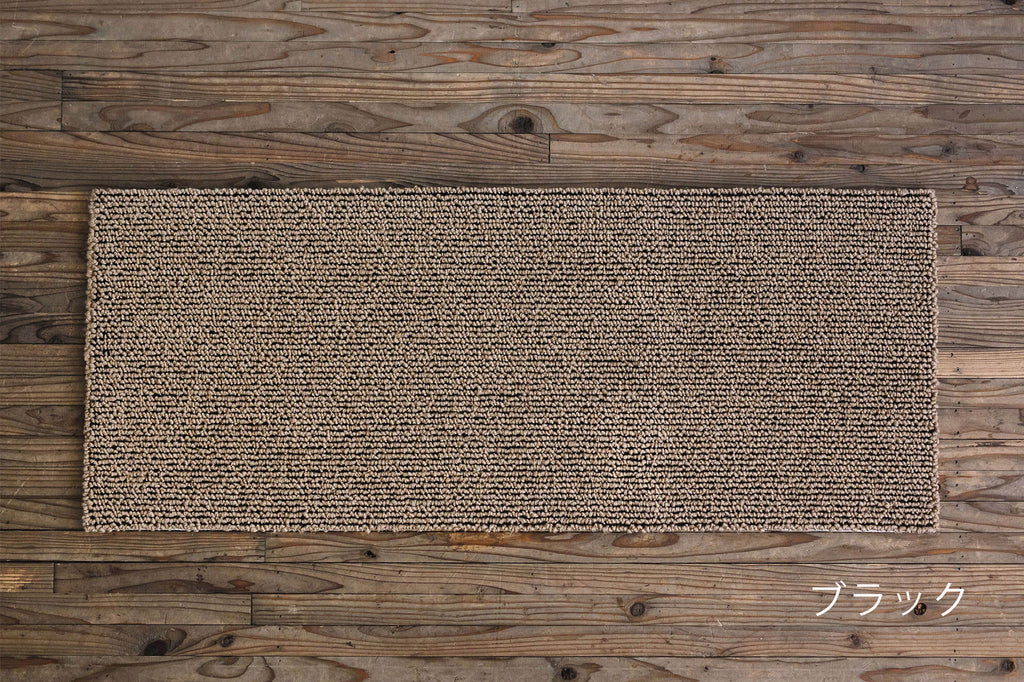 ブラック